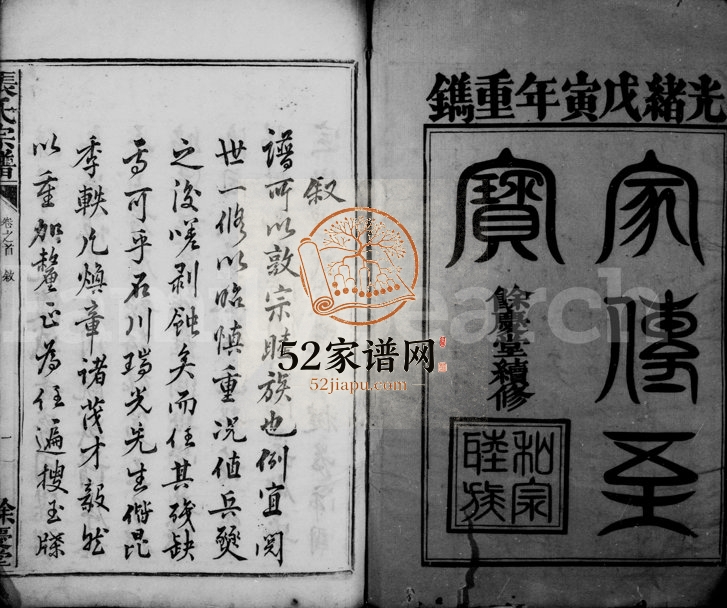 光緒戊寅年重鐫
家傳至
寶
餘慶堂續修
和宗
睦族
叙
譜所以敦宗睦族也例宜閱
世一修以昭慎重况值兵燹
之後嗟剥蝕矣而任其殘缺
焉可乎石川瑞光先生偕昆
季軼凡煥章諸茂才毅然
以重加釐正為任遍搜玉牒
張氏宗譜
卷之首 敘
一
餘慶堂
52家谱网
52jiapu.com
FamilySearch